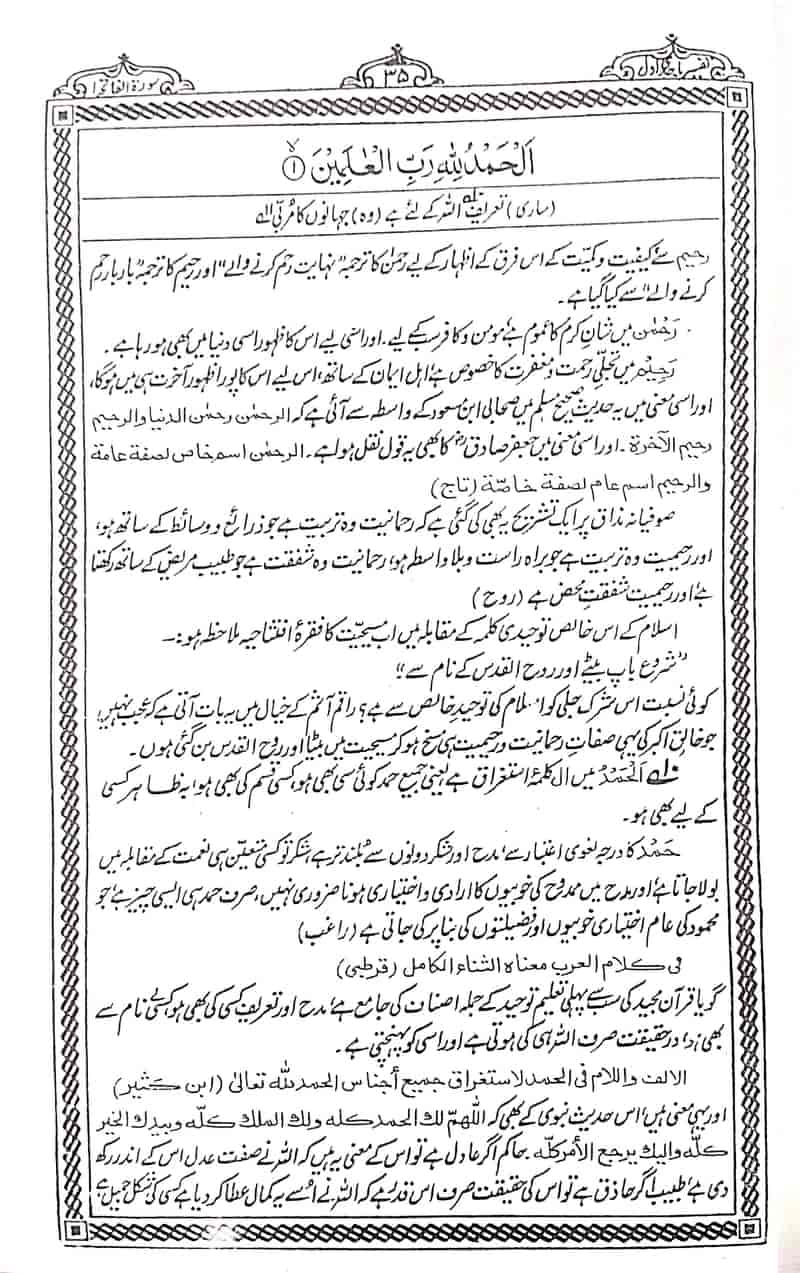 تفسیر ماجدی اول
۳۵
سورۃ الفاتحۃ ۱
اَلْحَمْدُ لِلّٰهِ رَبِّ الْعٰلَمِیْنَ ۙ۱
(ساری) تعریف اللہ کے لئے ہے (وہ) جہانوں کا مُربّی
رحیم سے، کیفیت و کمیّت کے اس فرق کے اظہار کے لیے رحمٰن کا ترجمہ "نہایت رحم کرنے والے" اور رحیم کا ترجمہ "بار بار رحم
کرنے والے" سے کیا گیا ہے۔
رَحْمٰن میں شانِ کرم کا عموم ہے، مومن و کافر سب کے لیے۔ اور اسی لیے اس کا ظہور اسی دنیا میں بھی ہو رہا ہے۔
رَحِیْم میں تجلّیِ رحمت و مغفرت کا خصوص ہے، اہل ایمان کے ساتھ، اس لیے اس کا پورا ظہور آخرت ہی میں ہوگا،
اور اسی معنی میں یہ حدیث صحیح مسلم میں صحابی ابن مسعود کے واسطہ سے آئی ہے کہ الرحمٰن رحمٰن الدنیا والرحیم
رحیم الآخرة۔ اور اسی معنی میں جعفر صادقؒ کا بھی یہ قول نقل ہوا ہے۔ الرحمٰن اسم خاص لصفة عامة
والرحیم اسم عام لصفة خاصّة (تاج)
صوفیانہ مذاق پر ایک تشریح یہ بھی کی گئی ہے کہ رحمانیت وہ تربیت ہے جو ذرائع و وسائط کے ساتھ ہو،
اور رحیمیت وہ تربیت ہے جو براہ راست و بلا واسطہ ہو، رحمانیت وہ شفقت ہے جو طبیب مریض کے ساتھ رکھتا
ہے، اور رحیمیت شفقتِ محض ہے (روح)
اسلام کے اس خالص توحیدی کلمہ کے مقابلہ میں اب مسیحیّت کا فقرۂ افتتاحیہ ملاحظہ ہو:۔
"شروع باپ بیٹے اور روح القدس کے نام سے"
کوئی نسبت اس شرک جلی کو اسلام کی توحیدِ خالص سے ہے؟ راقم آثم کے خیال میں یہ بات آتی ہے کہ عجب نہیں،
جو خالقِ اکبر کی یہی صفاتِ رحمانیت و رحیمیت ہی مسخ ہو کر مسیحیت میں بیٹا اور روح القدس بن گئی ہوں۔
اَلْحَمْدُ میں ال کلمۂ استغراق ہے یعنی جمیع حمد کوئی سی بھی ہو، کسی قسم کی بھی ہو، بہ ظاہر کسی
کے لیے بھی ہو۔
حَمْد کا درجہ لغوی اعتبار سے، مدح اور شکر دونوں سے بلند تر ہے، شکر تو کسی متعین ہی نعمت کے مقابلہ میں
بولا جاتا ہے، اور مدح میں ممدوح کی خوبیوں کا ارادی و اختیاری ہونا ضروری نہیں، صرف حمد ہی ایسی چیز ہے، جو
محمود کی عام اختیاری خوبیوں اور فضیلتوں کی بنا پر کی جاتی ہے (راغب)
فی کلام العرب معناہ الثناء الکامل (قرطبی)
گویا قرآن مجید کی سب سے پہلی تعلیم توحید کے جملہ اصناف کی جامع ہے، مدح اور تعریف کسی کی بھی ہو، کسی نام سے
بھی ہو، در حقیقت صرف اللہ ہی کی ہوتی ہے اور اسی کو پہنچتی ہے۔
الالف واللام فی الحمد لاستغراق جمیع أجناس الحمد للہ تعالیٰ (ابن کثیر)
اور یہی معنی ہیں، اس حدیث نبوی کے بھی کہ اللھمّ لك الحمد کله ولك الملك کلّه وبیدك الخیر
کلّه والیك یرجع الأمر کلّه۔ حاکم اگر عادل ہے تو اس کے معنی یہ ہیں کہ اللہ نے صفت عدل اس کے اندر رکھ
دی ہے، طبیب اگر حاذق ہے تو اس کی حقیقت صرف اس قدر ہے کہ اللہ نے اسے یہ کمال عطا کر دیا ہے، کسی کی شکل جمیل ہے